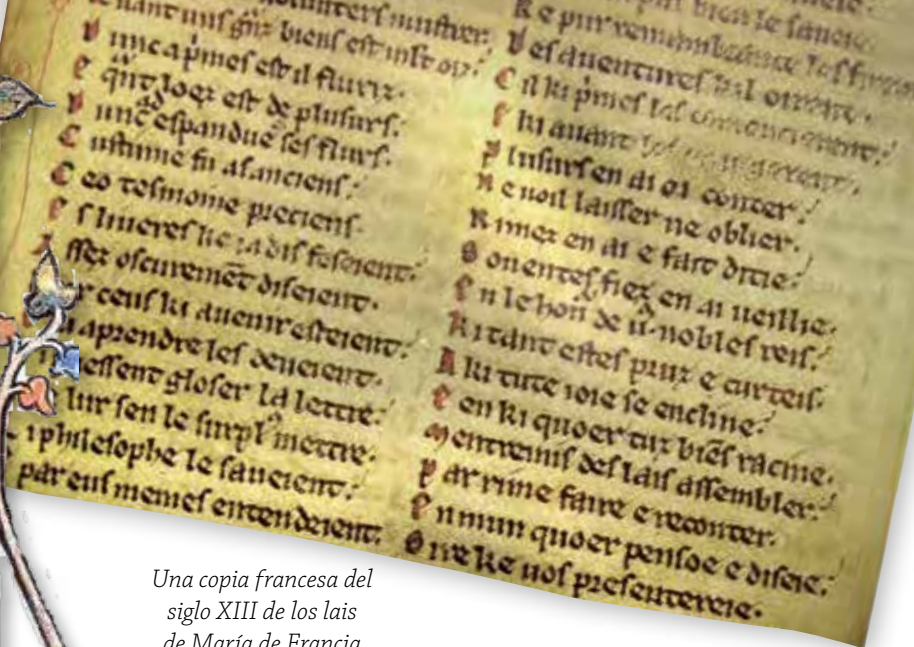 uant uns gñz biens est mlt oiz:
D unc a p̃mes est il fluriz.
E qñt loez est de plusurs:
D unc ad espandues ses flurs.
C ustume fu as anciens:
C eo tesmoine preciens.
E s liueres ke iadis feseient:
A ssez oscuremẽt diseient.
ceus ki a uenir esteient:
aprendre les deueient.
essent gloser la lettre:
lur sen le surpl⁹ mettre.
i philesophe le saueient:
par eus memes entendeient.
bien le saueie
K e pur remembrance les firent
D es auentures kil oirent.
C il ki p̃mes les comencierent:
E ki auant les enueierent.
P lusurs en ai oi conter:
N e uoil laisser ne oblier.
R imez en ai e fait ditie:
S ouentes fiez en ai ueillie.
E n le hon̄ de u⁹ nobles reis:
K i tant estes pruz e curteis.
A ki tute ioie se encline:
E en ki quoer tuz biẽs racine.
M entremis des lais assembler:
P ar rime faire e reconter.
E n mun quoer pensoe e diseie:
S ire kes uos presentereie.
Una copia francesa del
siglo XIII de los lais
de María de Francia